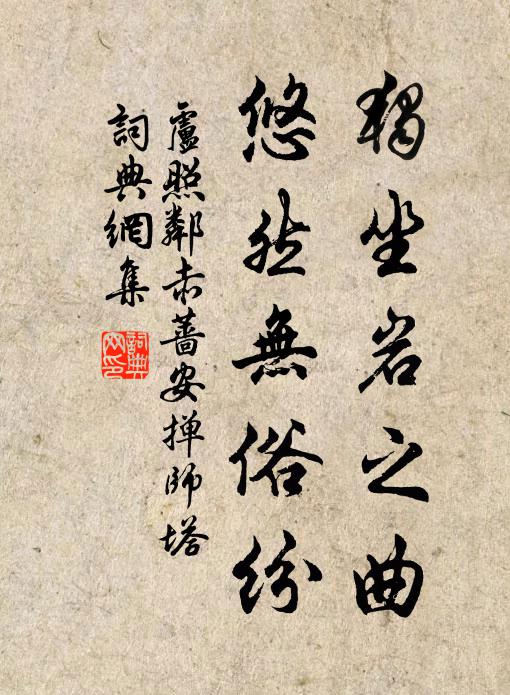 獨坐岩之曲
悠然無俗紛
盧照鄰赤薔安撣師塔
詞典網集
詞典
网印